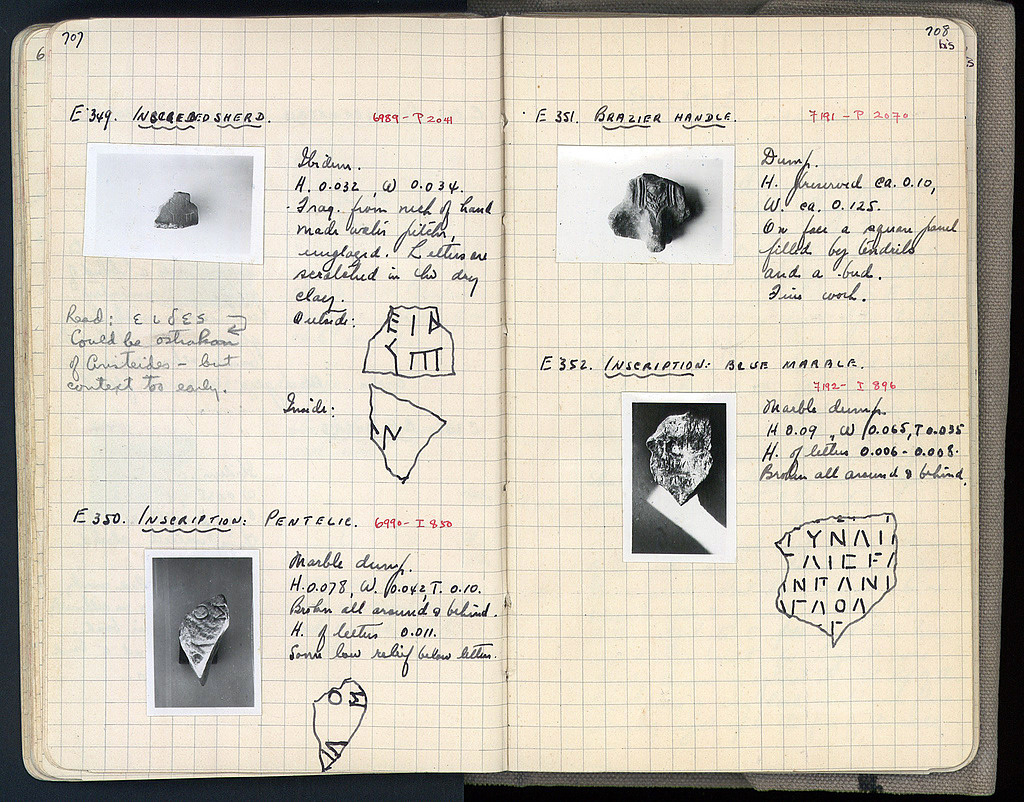 707
E 349. INSCRIBED SHERD. 6989 - P 2041
Ibidem.
H. 0.032, W 0.034.
Frag. from neck of hand
made water pitcher,
unglazed. Letters are
scratched in the dry
clay.
Outside:
ΕΙΔ
Inside:
Read:
Could be ostrakon
of Aristeides - but
context too early.
E 350. INSCRIPTION: PENTELIC. 6990 - I 850
Marble dump.
H. 0.078, W. 0.042 T. 0.10.
Broken all around & behind.
H. of letters 0.011.
Some low relief below letters.
708
bis
E 351. BRAZIER HANDLE. 7191 - P 2070
Dump.
H. preserved ca. 0.10,
W. ca. 0.125.
On face a square panel
filled by tendrils
and a bud.
Fine work.
E 352. INSCRIPTION: BLUE MARBLE.
7192 - I 896
Marble dump.
H 0.09, W 0.065, T 0.035
H. of letters 0.006 - 0.008.
Broken all around & behind.
ΥΝΛΙ
ΛΙΣΕ
ΙΝΠΑΝΙ
ΓΛΟΛ
Γ